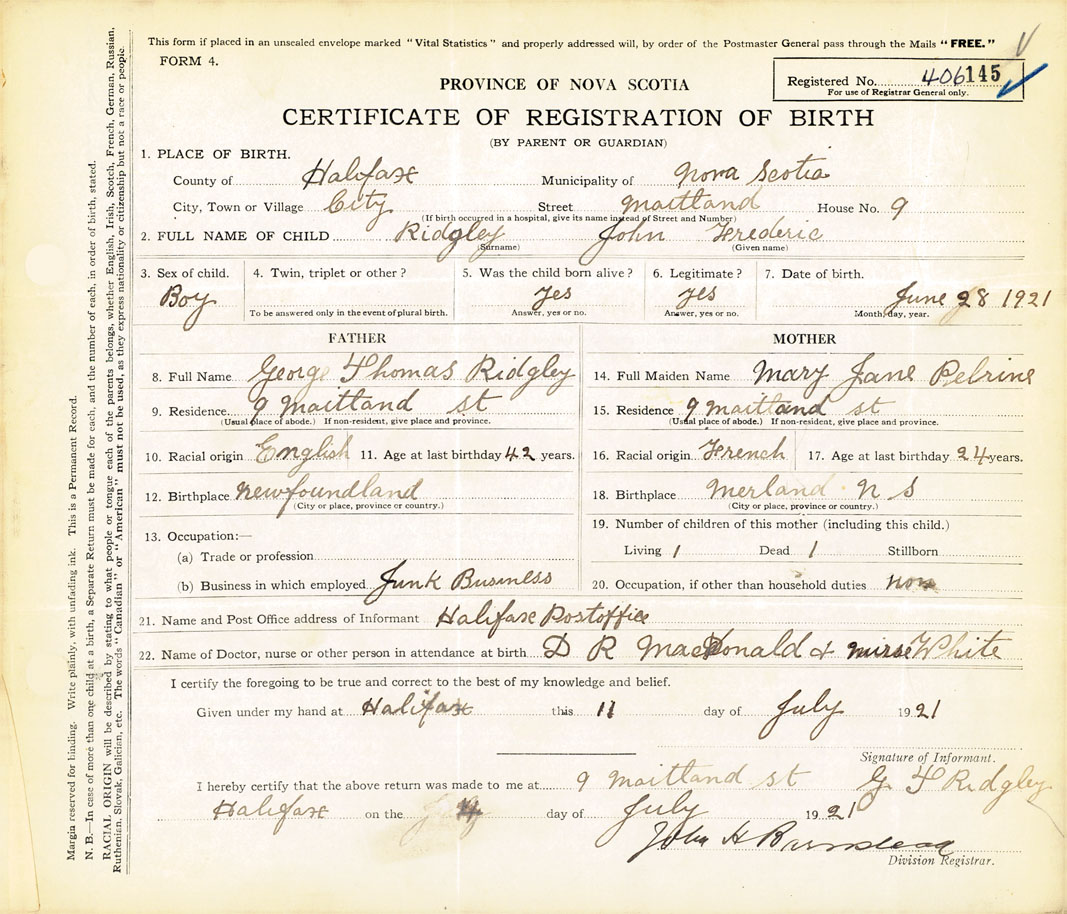 This form if placed in an unsealed envelope marked "Vital Statistics" and properly addressed will, by order of the Postmaster General pass through the Mails "FREE."
FORM 4.
Registered No. 406145
For use of Registrar General only.
PROVINCE OF NOVA SCOTIA
CERTIFICATE OF REGISTRATION OF BIRTH
(BY PARENT OR GUARDIAN)
1. PLACE OF BIRTH.
County of Halifax Municipality of Nova Scotia
City, Town or Village City Street Maitland House No. 9
(If birth occurred in a hospital, give its name instead of Street and Number)
2. FULL NAME OF CHILD Ridgley John Frederic
(Surname) (Given name)
3. Sex of child. 4. Twin, triplet or other? 5. Was the child born alive? 6. Legitimate? 7. Date of birth.
Boy yes yes June 28 1921
To be answered only in the event of plural birth. Answer, yes or no. Answer, yes or no. Month, day, year.
FATHER MOTHER
8. Full Name George Thomas Ridgley 14. Full Maiden Name Mary Jane Pelrine
9. Residence 9 Maitland st 15. Residence 9 Maitland st
(Usual place of abode.) If non-resident, give place and province. (Usual place of abode.) If non-resident, give place and province.
10. Racial origin English 11. Age at last birthday 42 years. 16. Racial origin French 17. Age at last birthday 24 years.
12. Birthplace Newfoundland 18. Birthplace Merland N S
(City or place, province or country.) (City or place, province or country.)
13. Occupation:— 19. Number of children of this mother (including this child.)
(a) Trade or profession Living 1 Dead 1 Stillborn
(b) Business in which employed Junk Business 20. Occupation, if other than household duties
21. Name and Post Office address of Informant Halifax Postoffice
22. Name of Doctor, nurse or other person in attendance at birth D R MacDonald & nurse White
I certify the foregoing to be true and correct to the best of my knowledge and belief.
Given under my hand at Halifax this 11 day of July 1921
Signature of Informant.
I hereby certify that the above return was made to me at 9 Maitland st G T Ridgley
Halifax on the day of July 1921
John H Barnstead
Division Registrar.
Margin reserved for binding. Write plainly, with unfading ink. This is a Permanent Record.
N. B.—In case of more than one child at a birth, a Separate Return must be made for each, and the number of each, in order of birth, stated.
RACIAL ORIGIN will be described by stating to what people or tongue each of the parents belongs, whether English, Irish, Scotch, French, German, Russian,
Ruthenian, Slovak, Galician, etc. The words "Canadian" or "American" must not be used, as they express nationality or citizenship but not a race or people.